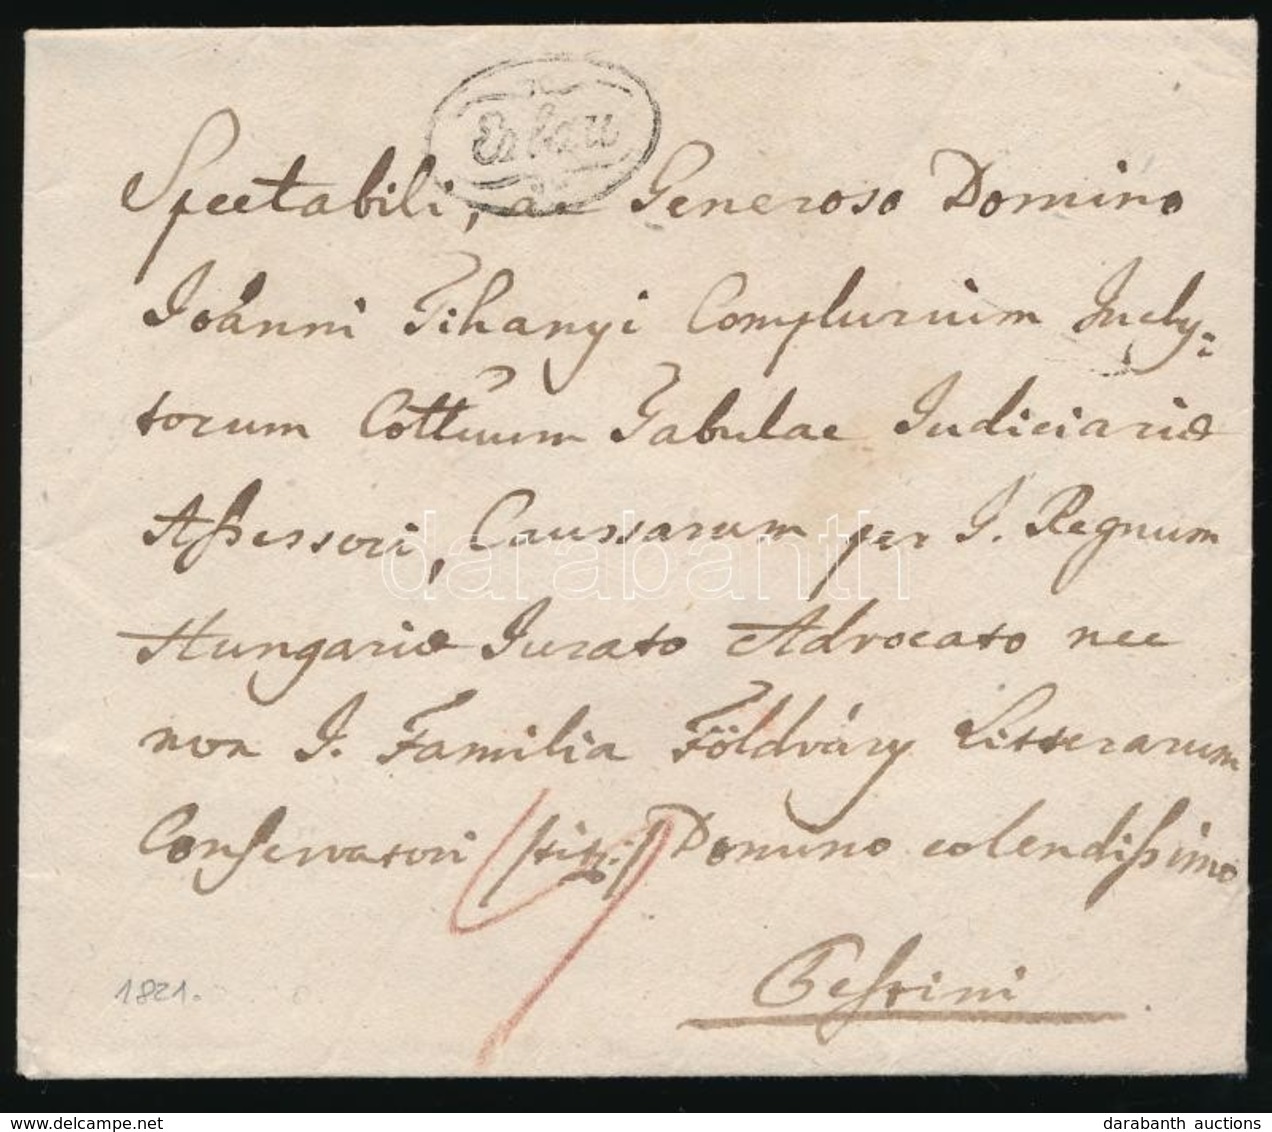 Erlau
Spectabili, ac Generoso Domino
Joanni Tihanyi Complurium Incly-
torum Cottuum Tabulae Judiciariæ
Assessori, Caussarum per I. Regnum
Hungariæ Jurato Advocato nec
non I. Familia Földváry Litterarum
Conservatori /titt:/ Domino colendissimo
Pestini
1821.
darabanth
darabanth auctions